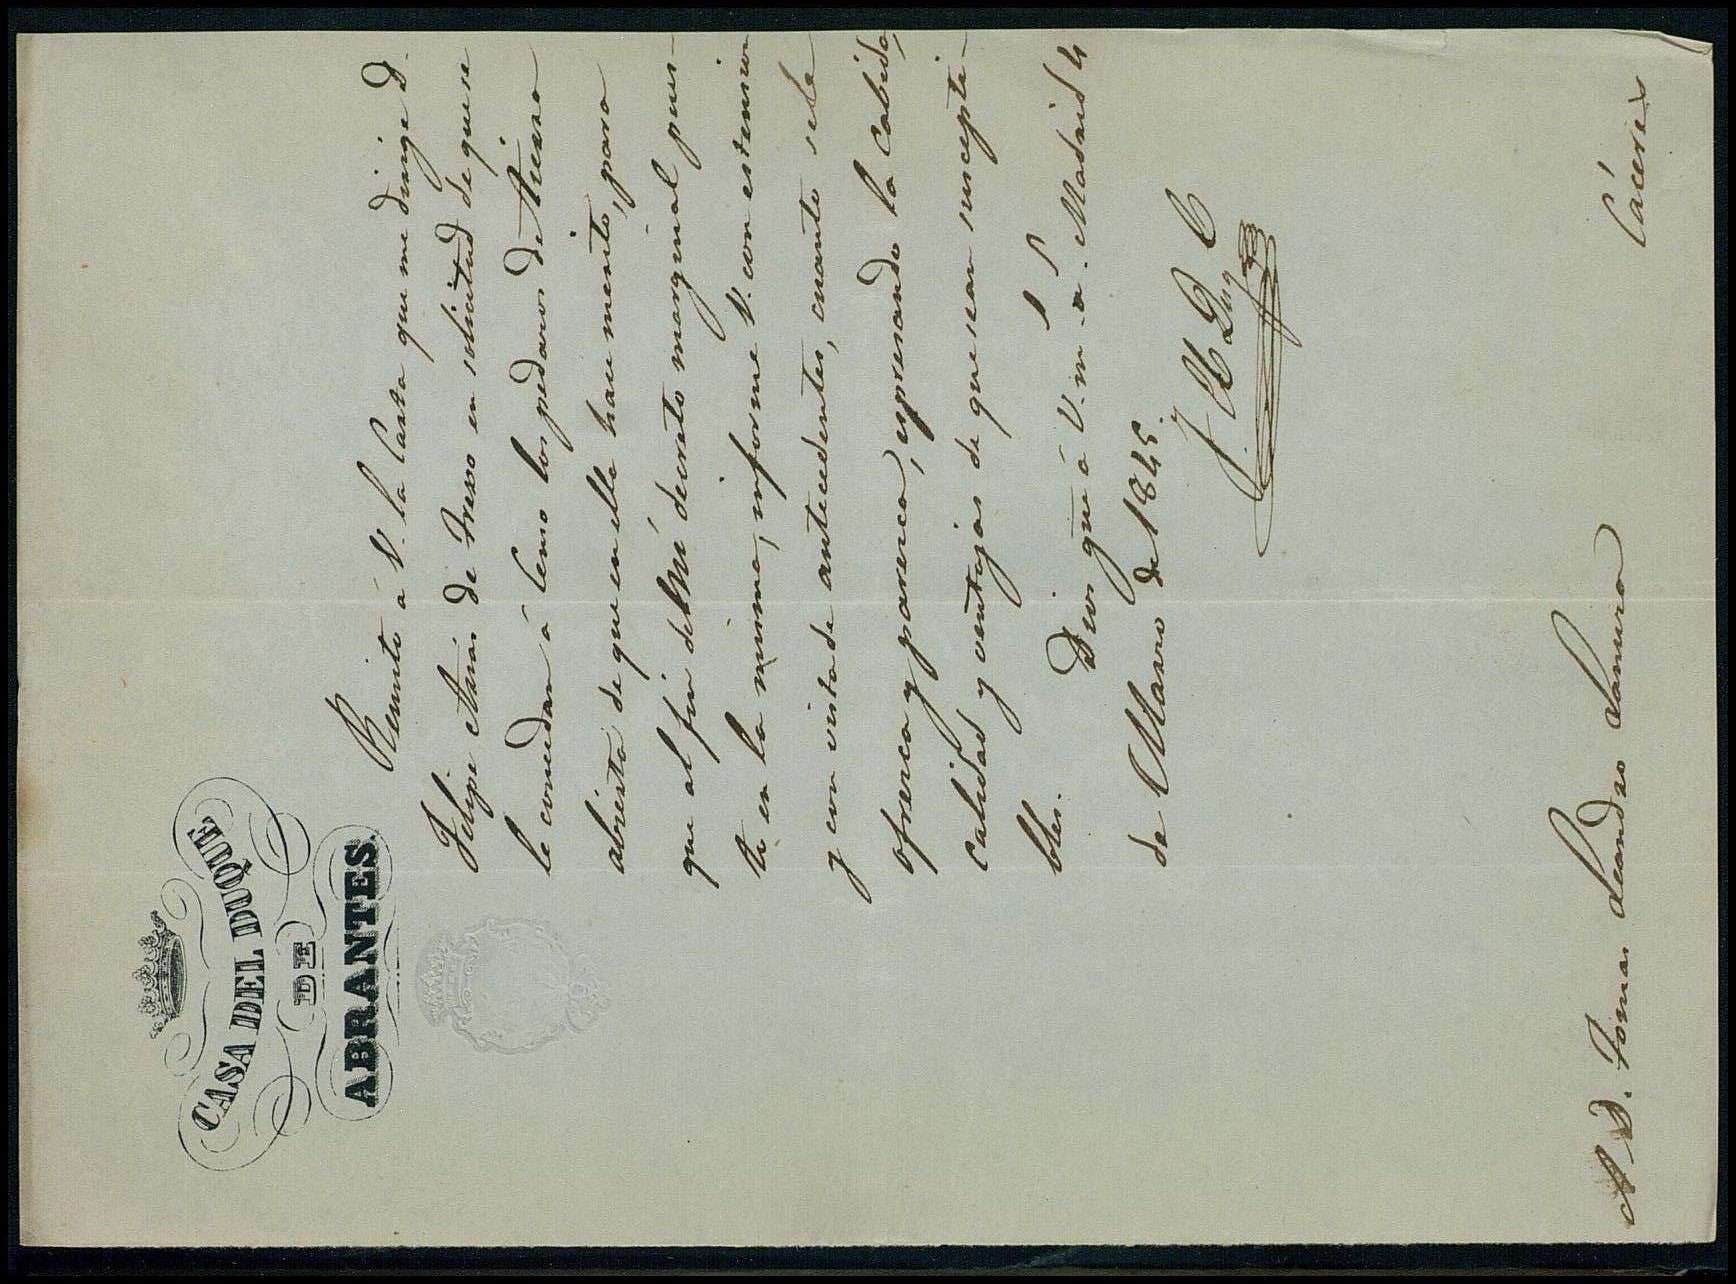 CASA DEL DUQUE
DE
ABRANTES.
Remito á V. la Carta que me dirige D.
Felipe Arias de en solicitud de que se
le concedan á Censo los pedazos de tierra
abierta de que en ella hace mento, para
que al fin del mi decreto marginal pues-
to en la misma, informe V. con estension
y con vista de antecedentes, cuanto se le
ofrezca y parezca, espresando la Cabida,
calidad y ventajas de que sean suscepti-
bles.
Dios gue á V. m. a. Madrid 4
de Marzo de 1845.
A D. Tomas Leandro Samura
Cáceres